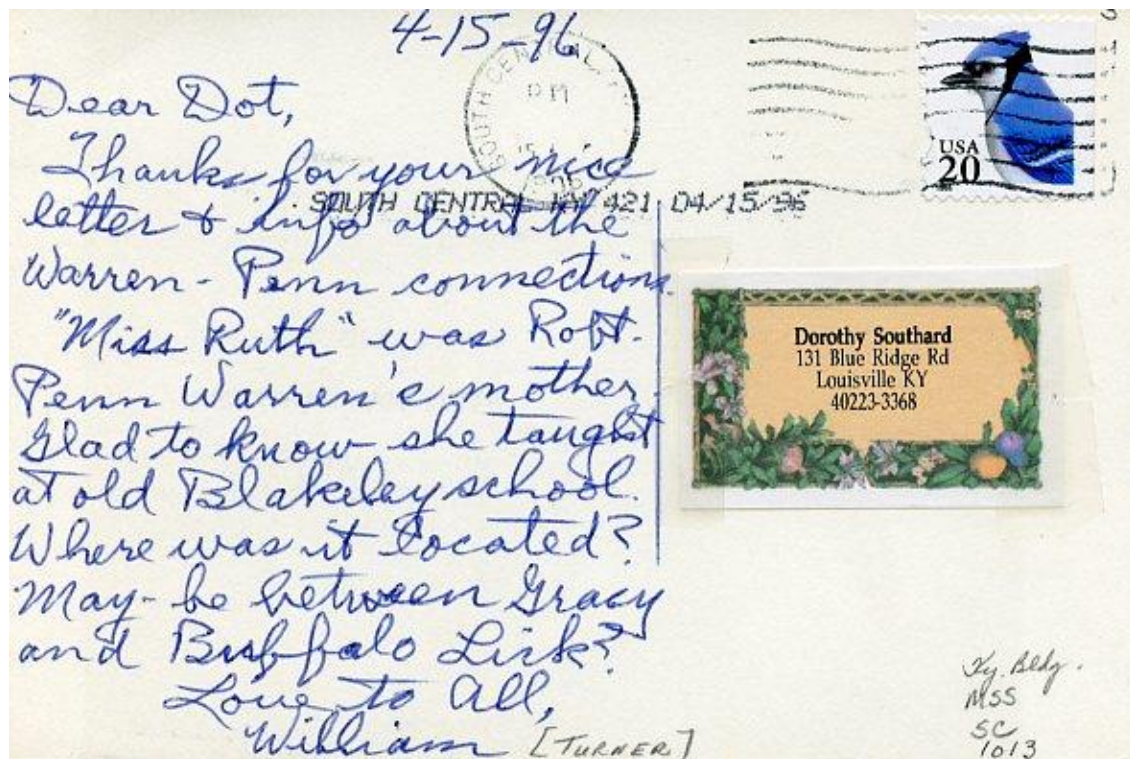 4-15-96
Dear Dot,
Thanks for your nice
letter & info about the
Warren-Penn connections.
"Miss Ruth" was Robt.
Penn Warren's mother.
Glad to know she taught
at old Blakeley school.
Where was it located?
May-be between Gracy
and Buffalo Lick?
Love to all,
William [TURNER]
SOUTH CENTRAL
PM
SOUTH CENTRAL KY 421 04/15/96
USA
20
Dorothy Southard
131 Blue Ridge Rd
Louisville KY
40223-3368
Ky. Bldg.
MSS
SC
1013